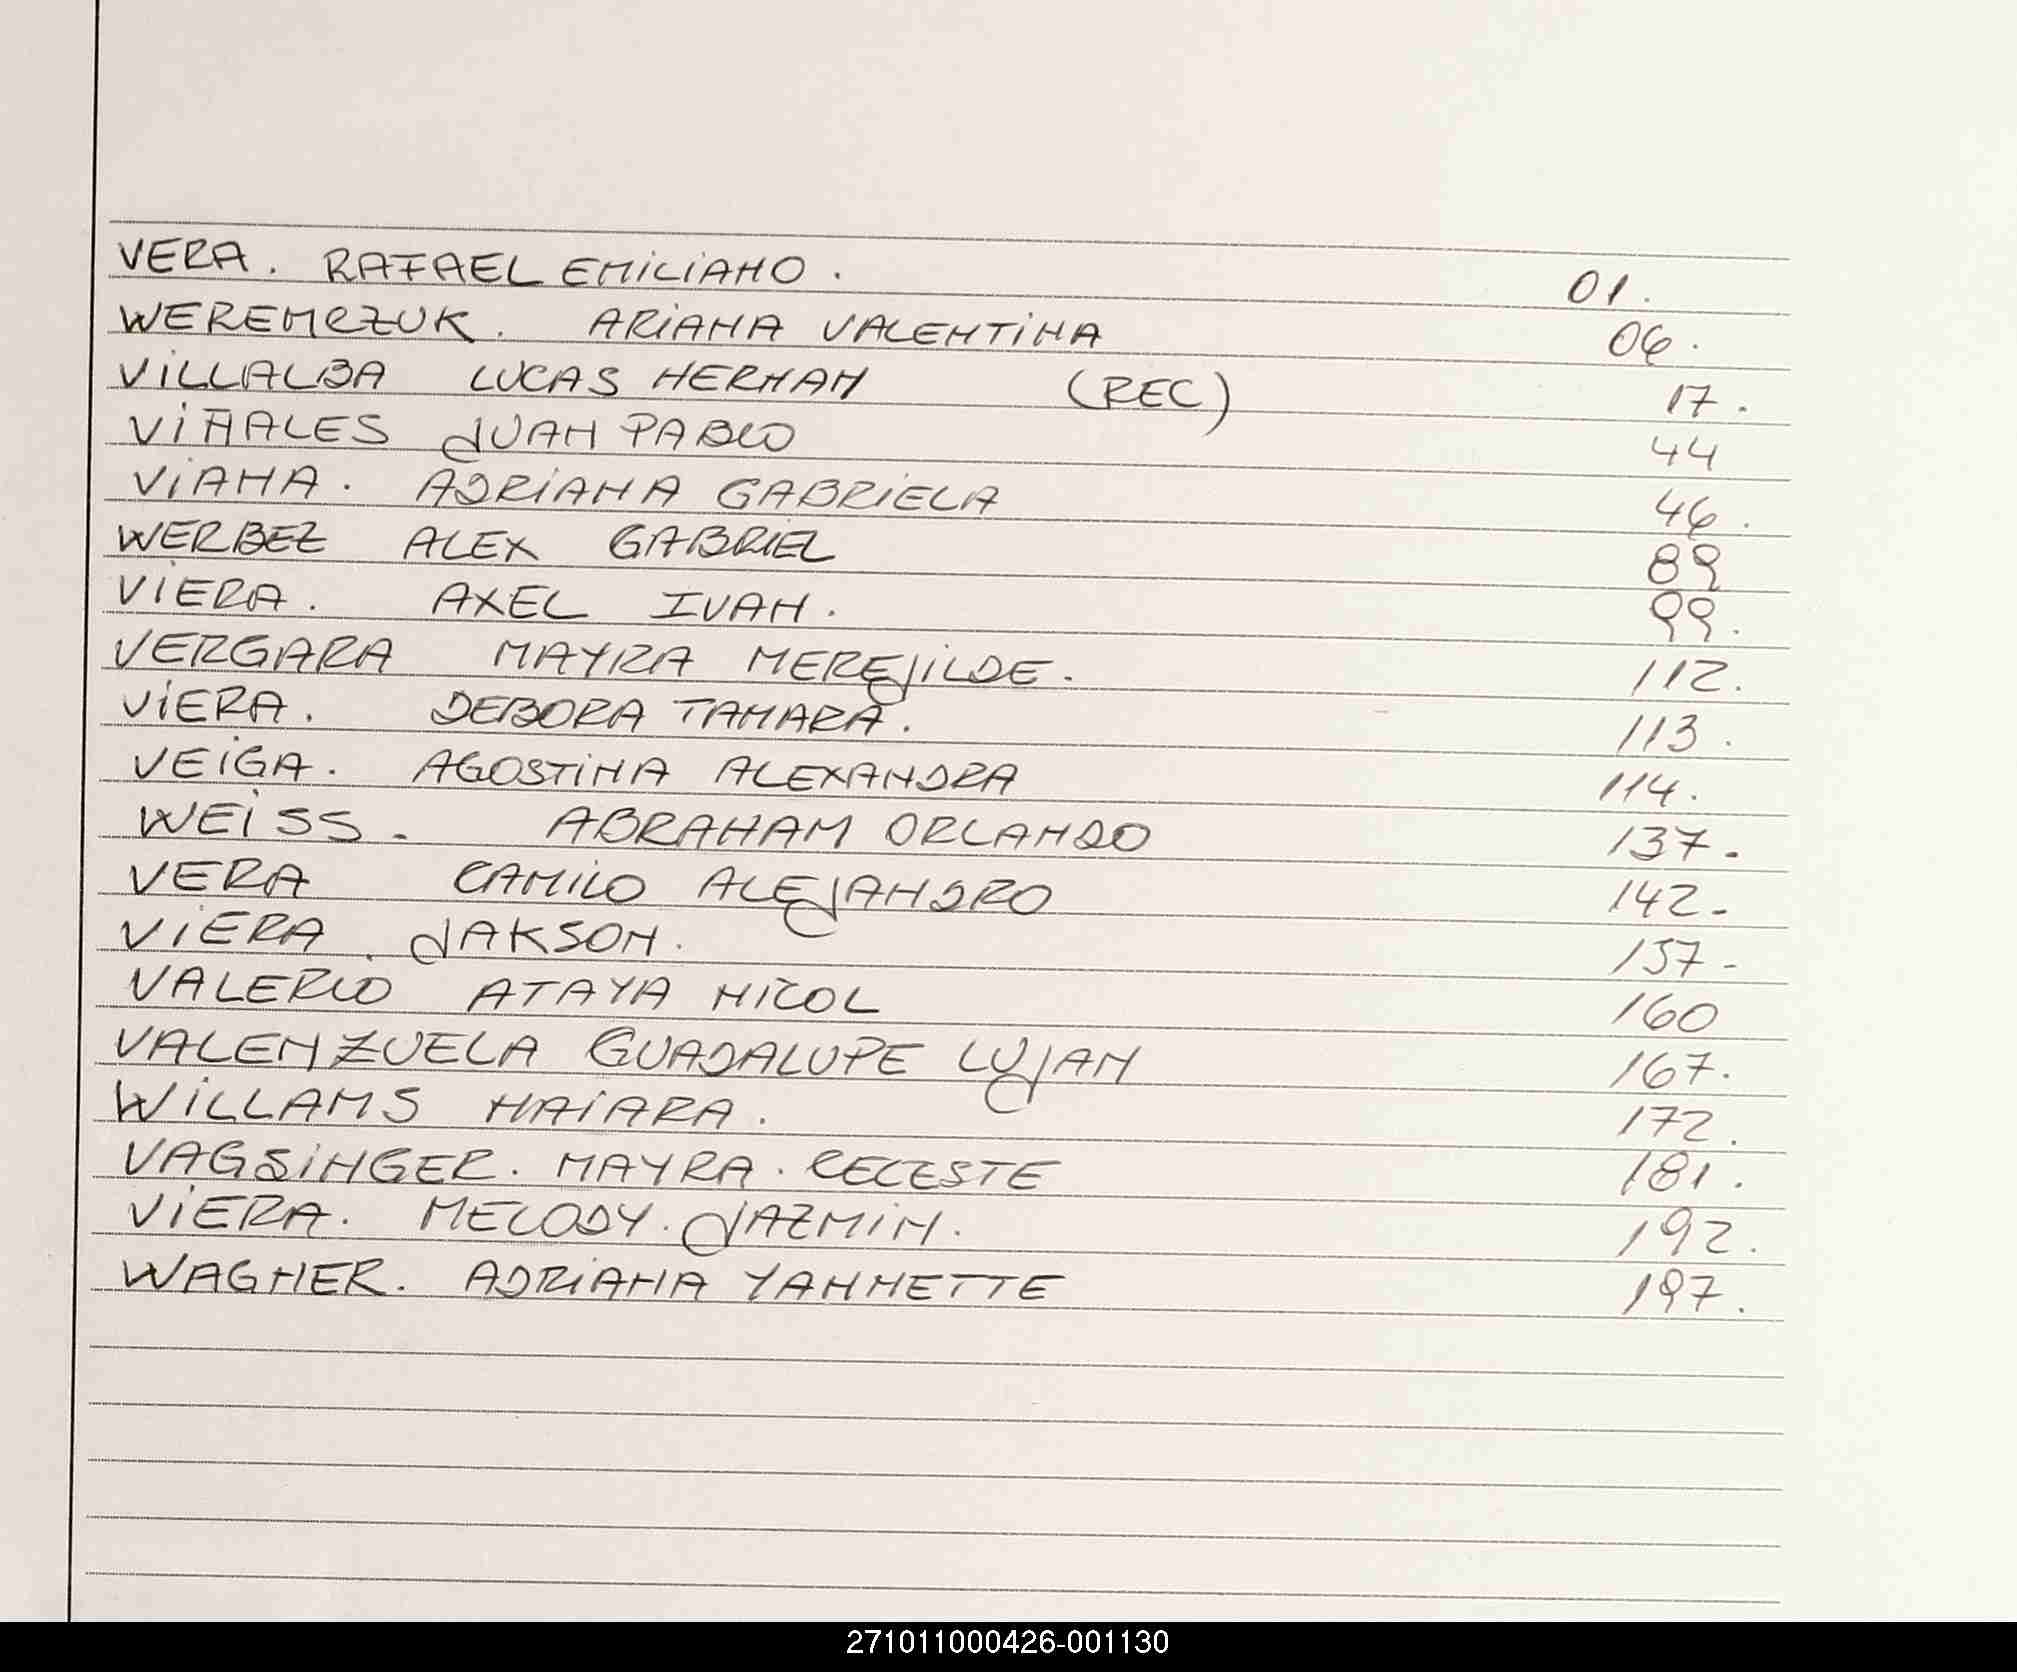 VERA. RAFAEL EMILIANO. 01.
WEREMCZUK. ARIANA VALENTINA 06.
VILLALBA LUCAS HERNAN (REC) 17.
VIÑALES JUAN PABLO 44
VIANA. ADRIANA GABRIELA 46.
WERBEZ ALEX GABRIEL 89
VIERA. AXEL IVAN. 99.
VERGARA MAYRA MEREJILDE. 112.
VIERA. DEBORA TAMARA. 113.
VEIGA. AGOSTINA ALEXANDRA 114.
WEISS. ABRAHAM ORLANDO 137.
VERA CAMILO ALEJANDRO 142-
VIERA. JAKSON. 157-
VALERIO ATAYA NICOL 160
VALENZUELA GUADALUPE LUJAN 167.
WILLAMS NAIARA. 172.
VAGSINGER. MAYRA. CECESTE 181.
VIERA. MELODY. JAZMIN. 192.
WAGNER. ADRIANA YANNETTE 197.
271011000426-001130